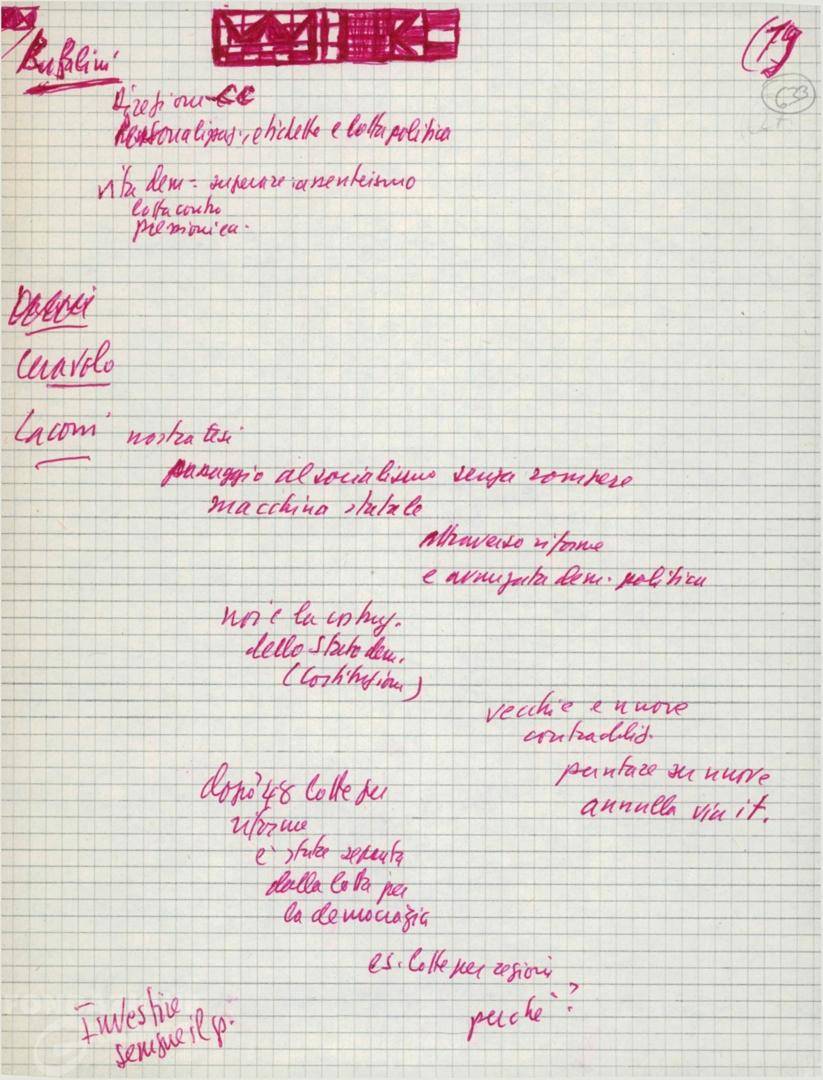 (79
Bufalini
633
Direzione CC
Personalizzaz., etichette e lotta politica
vita dem = superare assenteismo
lotta contro
Ceravolo
Laconi nostra tesi
passaggio al socialismo senza rompere
macchina statale
attraverso riforme
e avanzata dem. politica
noi è la costruz.
dello Stato dem.
(Costituzione)
vecchie e nuove
contraddiz.
puntare su nuove
annulla via it.
dopo '48 lotte per
riforme
è stata separata
dalla lotta per
la democrazia
es. lotte per regioni
perché?
Investire
sempre il p.